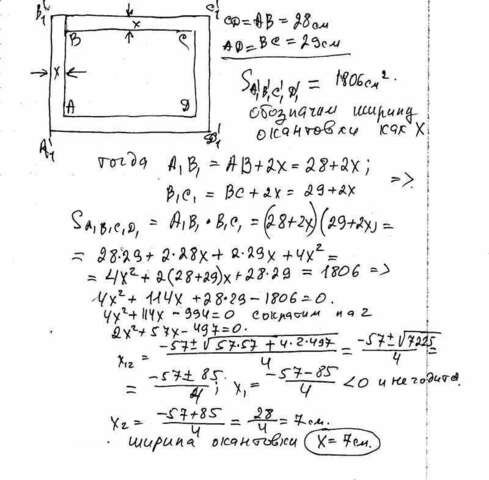 B₁' C₁'
x
B C
x
A D
A₁' D₁'
CD = AB = 28 см
AD = BC = 29 см
S A₁'B₁'C₁'D₁' = 1806 см².
обозначим ширину
окантовки как X
тогда A₁B₁ = AB + 2x = 28 + 2x ;
B₁C₁ = BC + 2x = 29 + 2x =>
S A₁B₁C₁D₁ = A₁B₁ · B₁C₁ = (28+2x)(29+2x) =
= 28·29 + 2·28x + 2·29x + 4x² =
= 4x² + 2(28+29)x + 28·29 = 1806 =>
4x² + 114x + 28·29 - 1806 = 0.
4x² + 114x - 994 = 0 сократим на 2
2x² + 57x - 497 = 0.
x₁₂ = (-57 ± √(57·57 + 4·2·497))/4 = (-57 ± √7225)/4 =
= (-57 ± 85)/4 ; x₁ = (-57 - 85)/4 < 0 и не годится
x₂ = (-57 + 85)/4 = 28/4 = 7 см.
ширина окантовки X = 7 см.